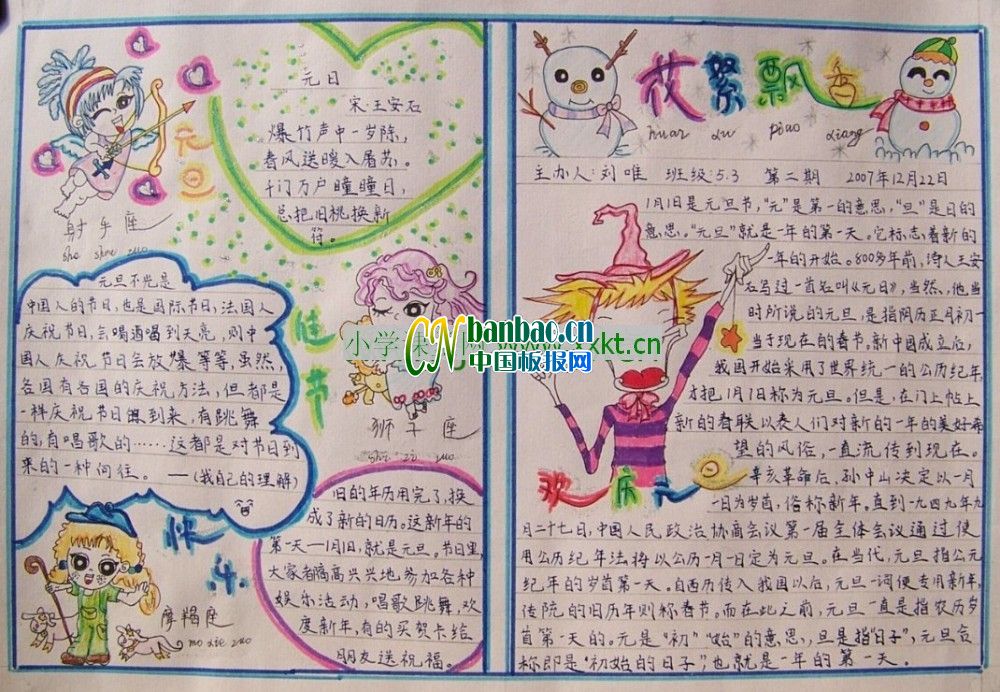 元旦
宋 王安石
爆竹声中一岁除,
春风送暖入屠苏。
千门万户瞳瞳日,
总把旧桃换新
符。
元旦
射手座
she shou zuo
元旦不光是
中国人的节日,也是国际节日,法国人
庆祝节日,会喝酒喝到天亮,则中
国人庆祝节日会放爆等等,虽然
各国有各国的庆祝方法,但都是
一样庆祝节日想到来,有跳舞
的,有唱歌的……这都是对节日到
来的一种向往。——(我自己的理解)
佳节
狮子座
shi zi zuo
快
摩羯座
mo jie zuo
旧的年历用完了,换
成了新的日历。这新年的
第一天—1月1日,就是元旦。节日里,
大家都高高兴兴地参加各种
娱乐活动,唱歌跳舞,欢
度新年,有的买贺卡给
朋友送祝福。
花絮飘香
huar xu piao xiang
主办人:刘唯 班级:5.3 第二期 2007年12月22日
1月1日是元旦节,“元”是第一的意思,“旦”是日的
意思。“元旦”就是一年的第一天。它标志着新的
一年的开始。800多年前,诗人王安
石写过一首名叫《元日》,当然,他当
时所说的元旦,是指阴历正月初一
当于现在的春节。新中国成立后,
我国开始采用了世界统一的公历纪年,
才把1月1日称为元旦。但是,在门上帖上
新的春联以表人们对新的一年的美好希
望的风俗,一直流传到现在。
辛亥革命后,孙中山决定以一月
一日为岁首,俗称新年。直到一九四九年九
月二十七日,中国人民政治协商会议第一届全体会议通过使
用公历纪年法,将以公历一月一日定为元旦。在当代,元旦指公元
纪年的岁首第一天。自西历传入我国以后,元旦一词便专用新年,
传统的旧历年则称春节。而在此之前,元旦一直是指农历岁
首第一天的。元是“初”“始”的意思,旦是指“日子”,元旦合
称即是“初始的日子”,也就是一年的第一天。
欢庆元旦
CN banbao.cn
中国板报网
xkt.cn